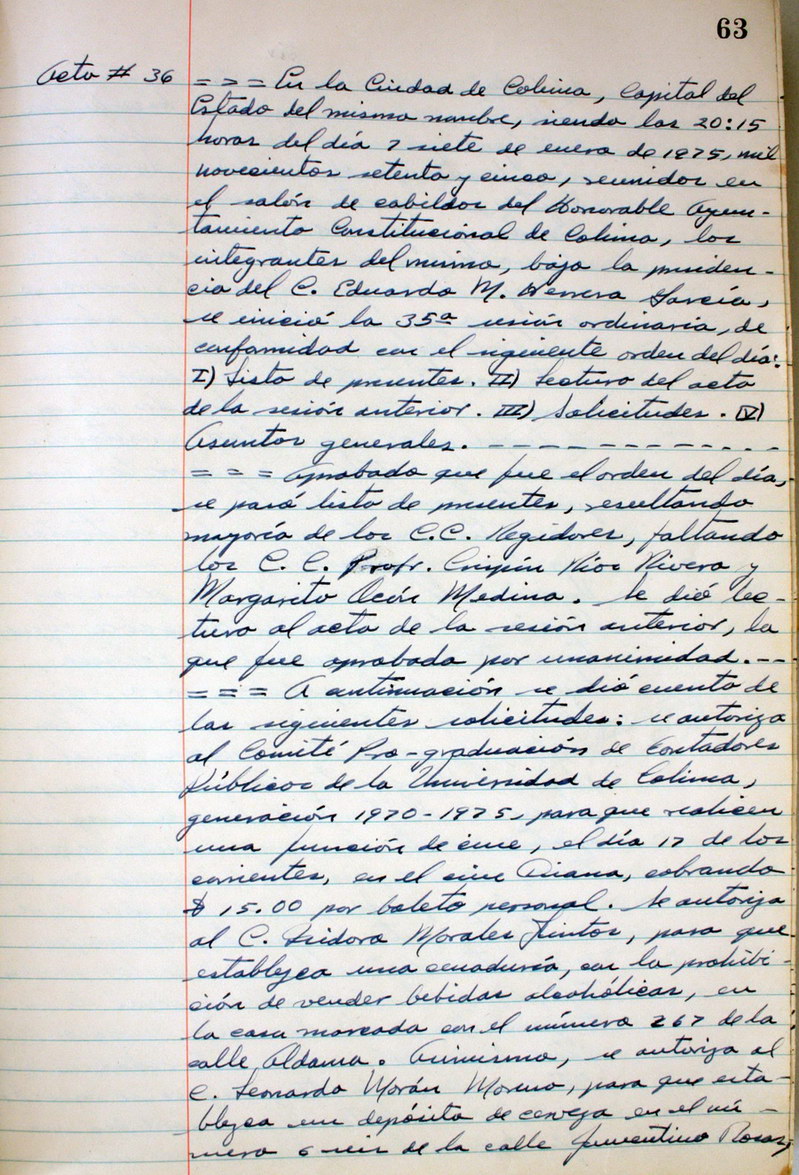 63
Acta # 36
= = = En la Ciudad de Colima, Capital del
Estado del mismo nombre, siendo las 20:15
horas del día 7 siete de enero de 1975, mil
novecientos setenta y cinco, reunidos en
el salón de cabildos del Honorable Ayun-
tamiento Constitucional de Colima, los
integrantes del mismo, bajo la presiden-
cia del C. Eduardo M. Herrera García,
se inició la 35ª sesión ordinaria, de
conformidad con el siguiente orden del día:
I) Lista de presentes. II) Lectura del acta
de la sesión anterior. III) Solicitudes. IV)
Asuntos generales. - - - - - - - - - - - -
= = = Aprobado que fue el orden del día,
se pasó lista de presentes, resultando
mayoría de los C.C. Regidores, faltando
los C. C. Profr. Crispín Ríos Rivera y
Margarito Ocón Medina. Se dió lec-
tura al acta de la sesión anterior, la
que fue aprobada por unanimidad. - -
= = = A continuación se dió cuenta de
las siguientes solicitudes: se autoriza
al Comité Pro-graduación de Contadores
Públicos de la Universidad de Colima,
generación 1970-1975, para que realicen
una función de cine, el día 17 de los
corrientes, en el cine Diana, cobrando
$ 15.00 por boleto personal. Se autoriza
al C. Isidora Morales Fintor, para que
establezca una cenaduría, con la prohibi-
ción de vender bebidas alcohólicas, en
la casa marcada con el número 267 de la
calle Aldama. Asimismo, se autoriza al
C. Leonardo Morán Moreno, para que esta-
blezca un depósito de cerveza en el nú-
mero 6 seis de la calle Juventino Rosas,